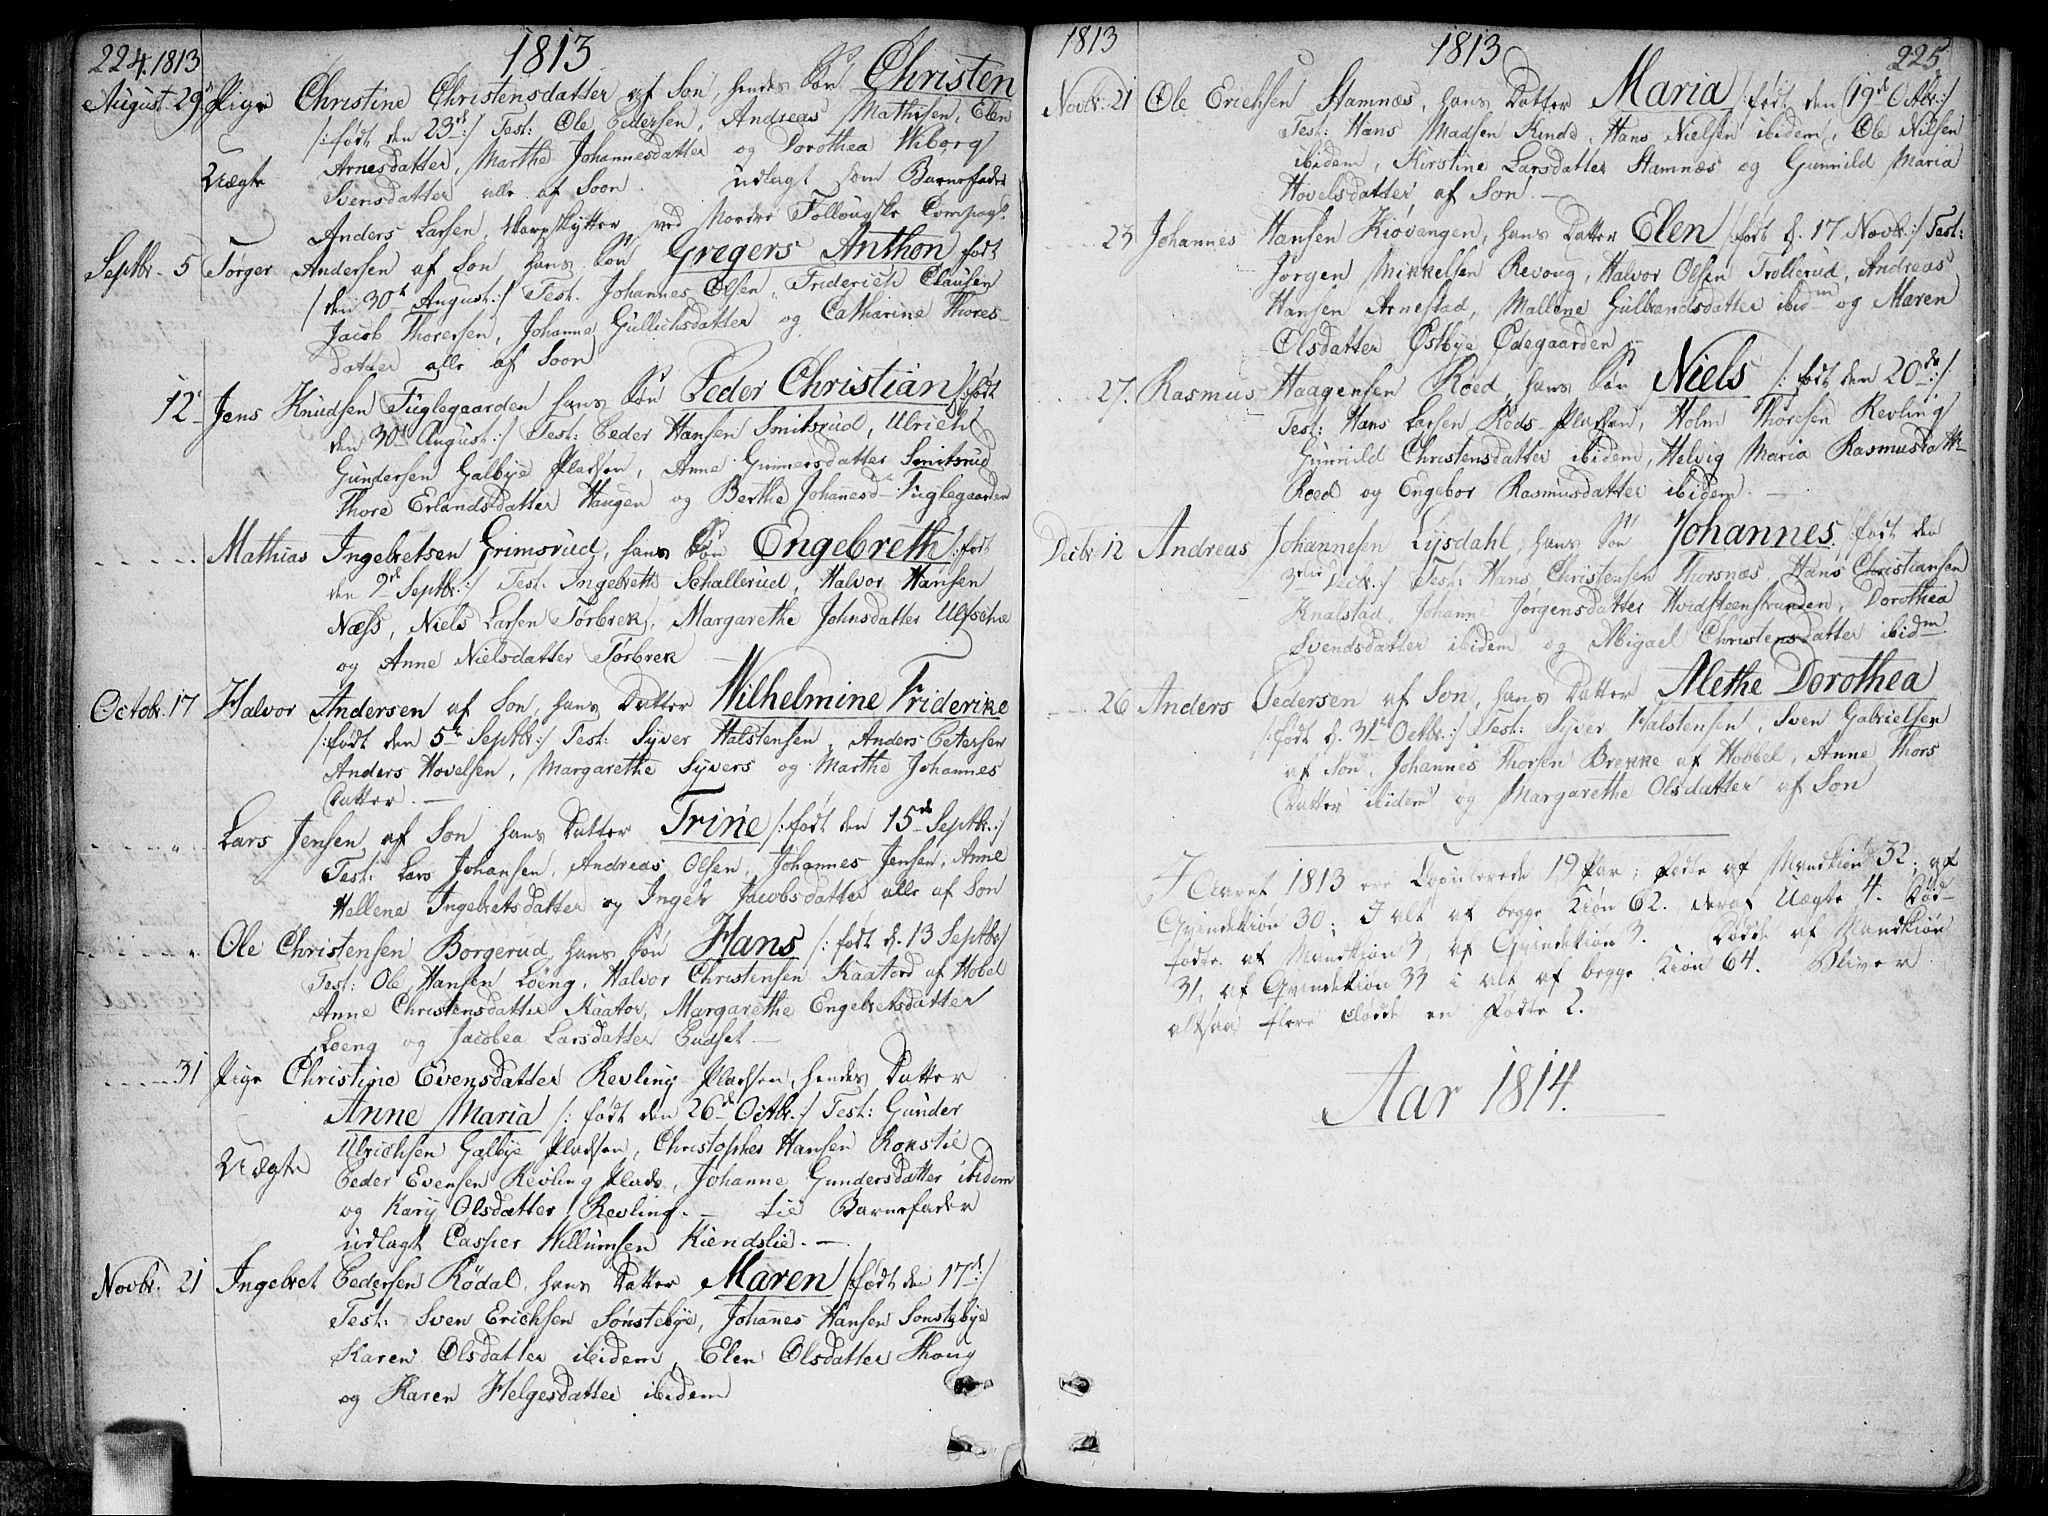 224. 1813
1813
August. 29de Pige Christine Christensdatter af Son, hendes Søn Christen
/: født den 23de :/ Test: Ole Pedersen, Andreas Mathisen, Elen
Arnesdatter, Marthe Johannesdatter og Dorothea Wiborg
Uægte Svensdatter alle af Soon. udlagt som Barnefader
Anders Larsen, skarpskytter ved Nordre Follougske Compagn.
Septbr. 5 Torger Andersen af Son hans Søn Gregers Anthon født
/ den 30te August :/ Test. Johannes Olsen, Friderich Clausen
Jacob Thorersen, Johanne Gullichsdatter og Catharine Thores-
datter alle af Soon
12te Jens Knudsen Fuglegaarden hans Søn Peder Christian /: født
den 30te August :/ Test: Peder Hansen Smitsrud, Ulrich
Gundersen Galbye Pladsen, Anne Gunnersdatter Smitsrud
Thore Erlandsdatter Haugen og Berthe Johannesd. Fuglegaarden
Mathias Ingebretsen Grimsrud, hans Søn Engebreth /: født
den 9de Septbr. :/ Test. Ingebreth Schallerud, Halvor Hansen
Næss, Niels Larsen Torbrek, Margarethe Johnsdatter
og Anne Nielsdatter Torbrek
Octobr. 17 Halvor Andersen af Son, hans Datter Wilhelmine Friderike
/: født den 5te Septbr :/ Test: Syver Halstensen, Anders Petersen
Anders Hovelsen, Margarethe Syvers og Marthe Johannes
Datter. —
" Lars Jensen af Son hans Datter Trine /: født den 15de Septbr. :/
Test: Lars Johansen, Andreas Olsen, Johannes Jensen, Anne
Hellene Ingebretsdatter og Ingebr Jacobsdatter alle af Son
" Ole Christensen Borgerud, hans Søn Hans /: født d. 13 Septbr /
Test: Ole Hansen Loeng, Halvor Christensen Kaatord af Hobel
Anne Christensdatter Kaator, Margarethe Engebretsdatter
Loeng og Jacobea Larsdatter Budset —
31 Pige Christine Evensdatter Revling Pladsen, hendes Datter
Anne Maria /: født den 26de Octbr. :/ Test: Gunder
Ulrichsen Galbye Pladsen, Christopher Hansen Rokstie
Uægte Peder Evensen Revling Plads, Johanne Gundersdatter ibidem
og Kary Olsdatter Revling. — til Barnefader
udlagt Casper Willumsen Kiendslie. —
Novbr. 21 Ingebret Pedersen Rödal, hans Datter Maren /født den 17de :/
Test: Sven Erichsen Sønstebye, Johannes Hansen Sonstebye
Karen Olsdatter ibidem, Elen Olsdatter Thoug
og Karen Helgesdatter ibidem
1813
1813
225
Novbr. 21 Ole Erichsen Stamnæs, hans Datter Maria /: født den 19de Octbr :/
Test: Hans Madsen Kinds, Hans Nielsen ibidem, Ole Nilsen
ibidem, Kirstine Larsdatter Stamnæs og Gunnild Maria
Hovelsdatter af Son. —
23 Johannes Hansen Kiøvangen, hans Datter Elen /: født d. 17 Novbr. :/ Test:
Jørgen Mikkelsen Revoug, Halvor Olsen Trollerud, Andreas
Hansen Arnestad, Mallene Gulbrandsdatter ibidm og Maren
Olsdatter Østbye Ødegaarden. —
27. Rasmus Haagensen Roed, hans Søn Niels /: født den 20de :/
Test: Hans Larsen Röds Pladsen, Holm Thoresen Revling
Gunnild Christensdatter ibidem, Helvig Maria Rasmusdatter
Roed og Engebor Rasmusdatter ibidem. —
Decbr 12 Andreas Johannesen Lysdahl, hans Søn Johannes, /: født den
3die Decbr. :/ Test: Hans Christensen Thorsnæs, Hans Christiansen
Knalstad, Johanne Jørgensdatter Hvidsteenstranden, Dorothea
Svendsdatter ibidem og Abigael Christensdatter ibidm
26 Anders Pedersen af Son, hans Datter Alethe Dorothea
/: født d. 31te Octbr. :/ Test: Syver Halstensen, Sven Gabrielsen
af Son, Johannes Thorsen Brekke af Hobbel, Anne Thors
Datter ibidem og Margarethe Olsdatter af Son
I Aaret 1813 ere Copulerede 19 Par; Fødte af Mandkiøn 32; af
Qvindekiøn 30; I alt af begge Kiøn 62. deraf Uægte 4. Død-
fødte af Mandkiøn 3, af Qvindekiøn 3. Døde af Mandkiøn
31, af Qvindekiøn 33 i alt af begge Kiøn 64. Bliver
altsaa flere døde en Fødte 2.
Aar 1814.